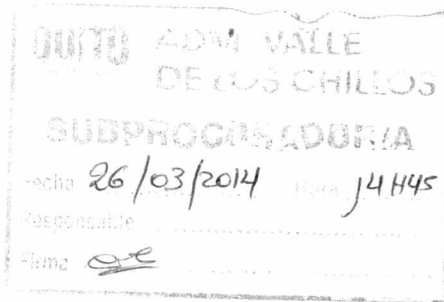 QUITO ADM. VALLE
DE LOS CHILLOS
SUBPROCURADURIA
Fecha 26/03/2014 Hora 14H45
Responsable
Firma